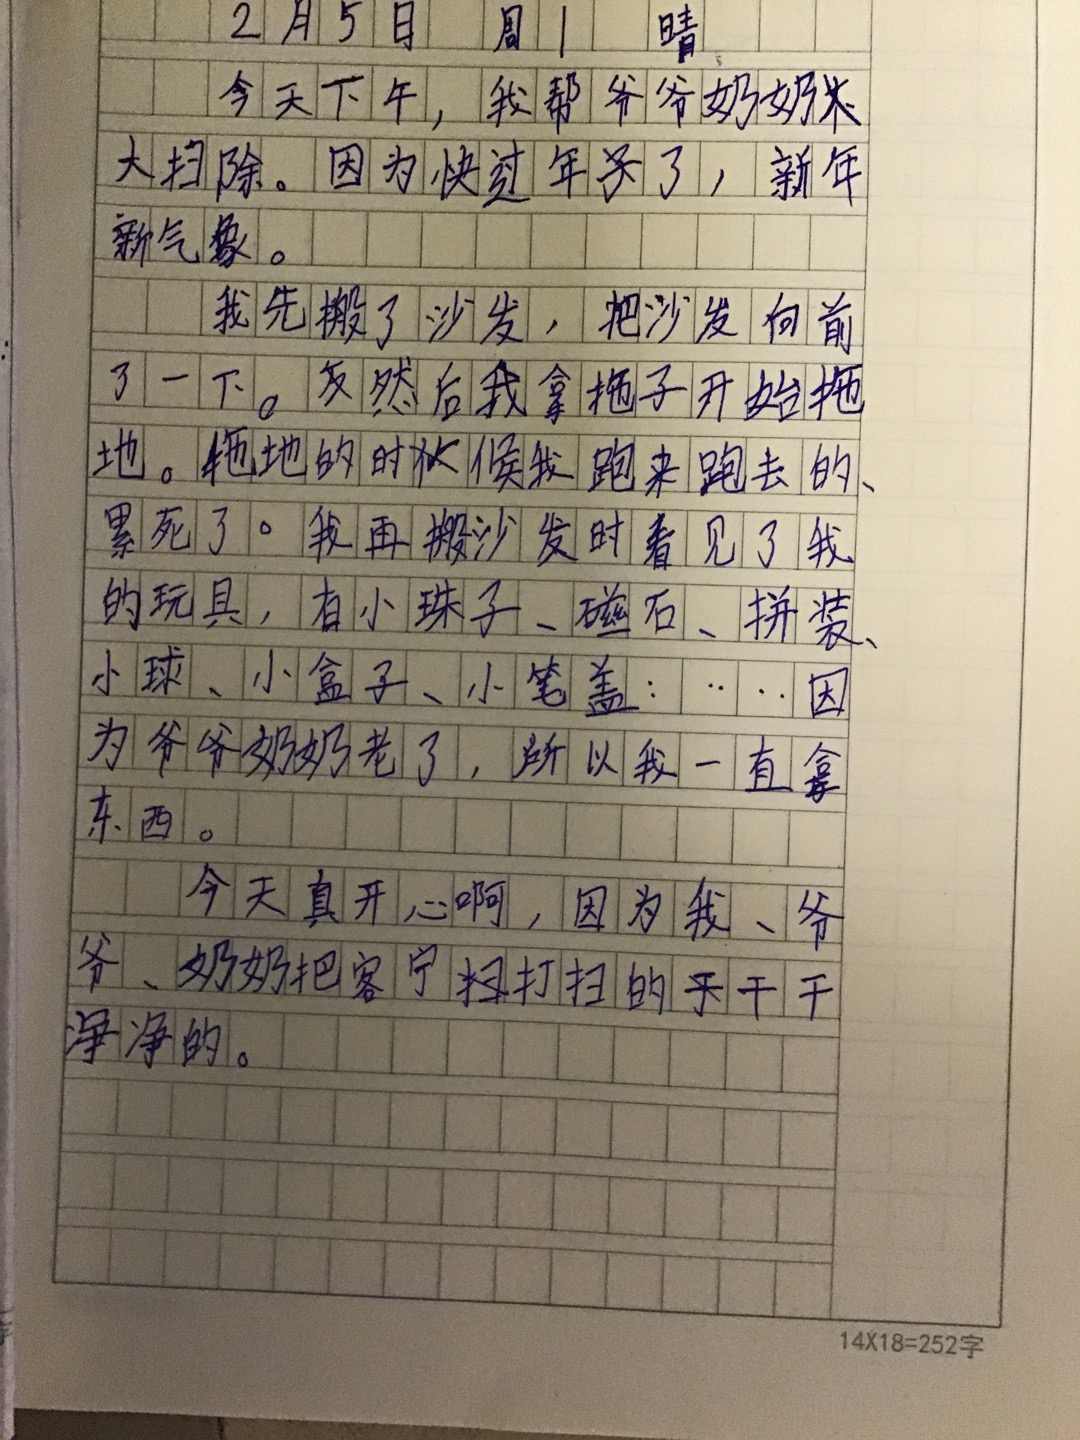 2月5日 周1 晴
今天下午，我帮爷爷奶奶来
大扫除。因为快过年了，新年
新气象。
我先搬了沙发，把沙发向前
了一下。然后我拿拖子开始拖
地。拖地的时候我跑来跑去的、
累死了。我再搬沙发时看见了我
的玩具，有小珠子、磁石、拼装、
小球、小盒子、小笔盖……因
为爷爷奶奶老了，所以我一直拿
东西。
今天真开心啊，因为我、爷
爷、奶奶把客宁打扫的干干
净净的。
14X18=252字